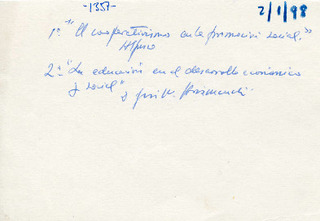 -1357-
2/1/98
1º "El cooperativismo en la promoción social."
2º "La educación en el desarrollo económico
y social"